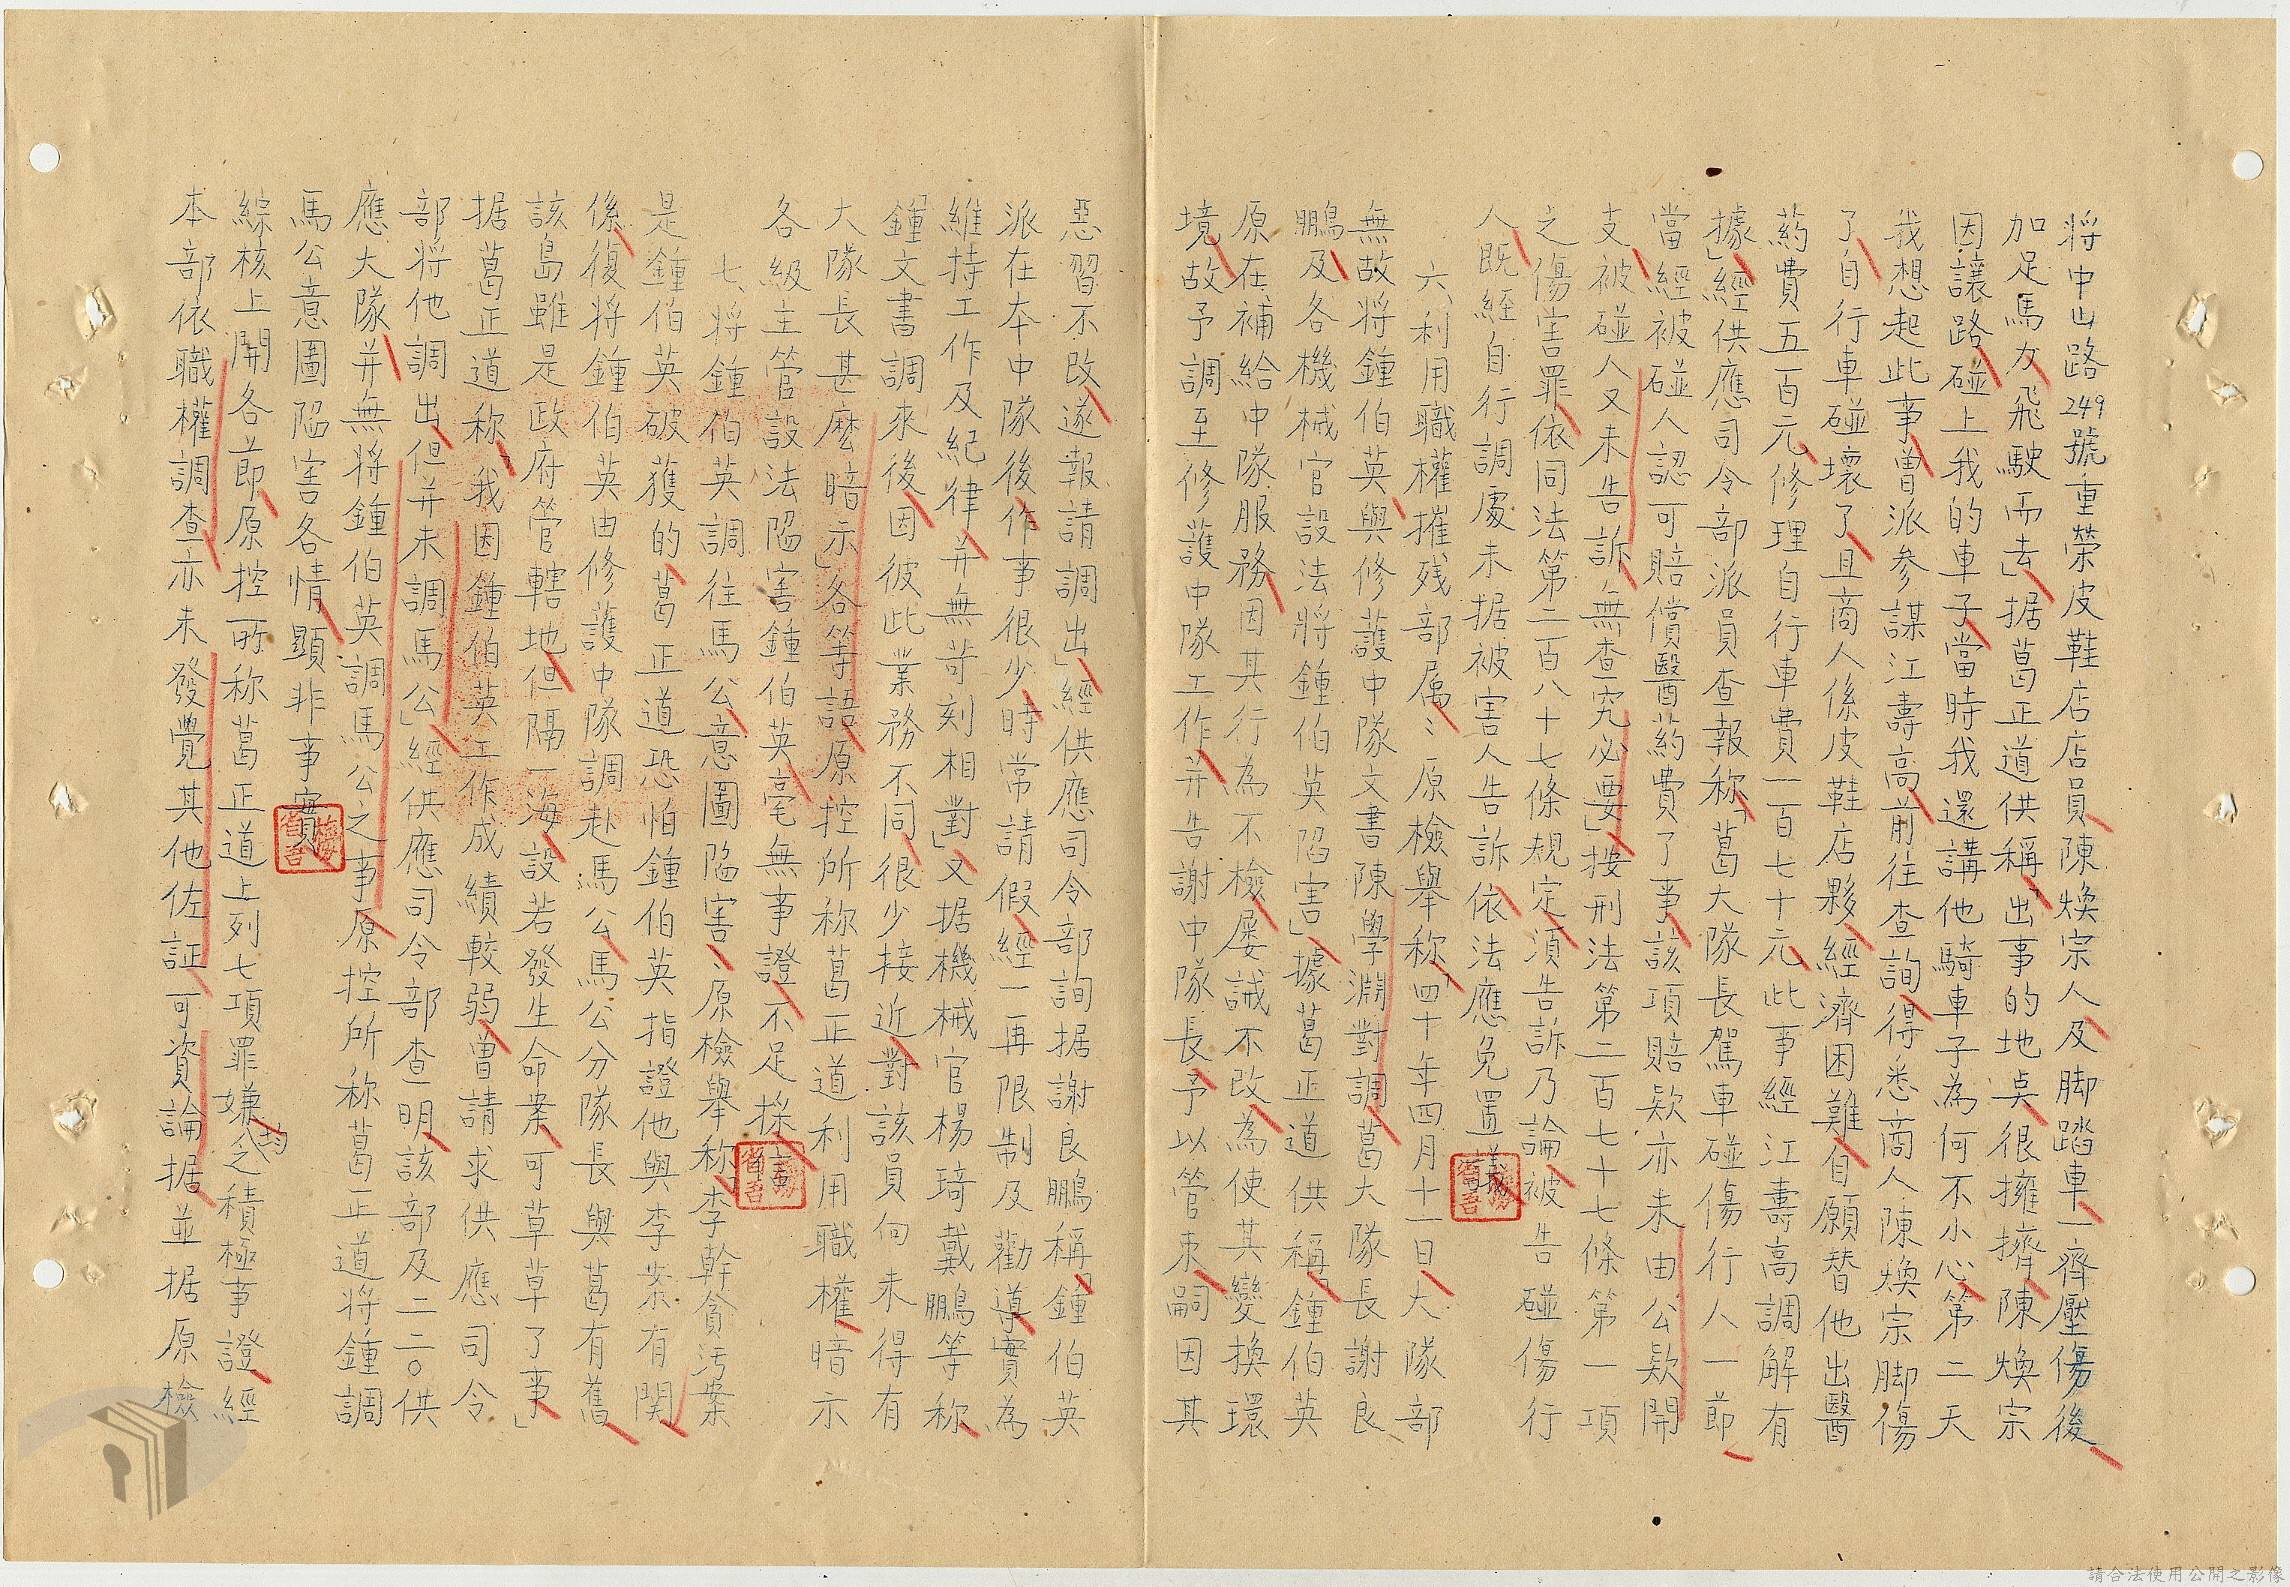 將中山路249號重榮皮鞋店店員陳煥宗人及脚踏車一齊壓傷後
加足馬力飛駛而去」据葛正道供稱「出事的地点很擁擠陳煥宗
因讓路碰上我的車子當時我還講他騎車子為何不小心第二天
我想起此事曾派参謀江壽高前往查詢得悉商人陳煥宗脚傷
了自行車碰壞了且商人係皮鞋店夥經濟困難自願替他出醫
葯費五百元修理自行車費一百七十元此事經江壽高調解有
據」經供應司令部派員查報称「葛大隊長駕車碰傷行人一節
當經被碰人認可賠償醫葯費了事該項賠欵亦未由公欵開
支被碰人又未告訴無查究必要」按刑法第二百七十七條第一項
之傷害罪依同法第二百八十七條規定須告訴乃論被告碰傷行
人既經自行調處未据被害人告訴依法應免置議
六、利用職權摧残部属：原檢舉称「四十年四月十一日大隊部
無故將鍾伯英與修護中隊文書陳學淵對調葛大隊長謝良
鵬及各機械官設法將鍾伯英陷害」據葛正道供稱「鍾伯英
原在補給中隊服務因其行為不檢屡誡不改為使其變換環
境故予調至修護中隊工作并告謝中隊長予以管束嗣因其
惡習不改遂報請調出」經供應司令部詢据謝良鵬稱「鍾伯英
派在本中隊後作事很少時常請假經一再限制及勸導實為
維持工作及紀律并無苛刻相對」又据機械官楊琦戴鵬等称
「鍾文書調來後因彼此業務不同很少接近對該員向未得有
大隊長甚麽暗示」各等語原控所称葛正道利用職權暗示
各級主管設法陷害鍾伯英毫無事證不足採信
七、將鍾伯英調往馬公意圖陷害：原檢舉称「李幹貪污案
是鍾伯英破獲的葛正道恐怕鍾伯英指證他與李案有関
係復將鍾伯英由修護中隊調赴馬公馬公分隊長與葛有舊
該島雖是政府管轄地但隔一海設若發生命案可草草了事」
据葛正道称「我因鍾伯英工作成績較弱曾請求供應司令
部將他調出但并未調馬公」經供應司令部查明該部及二二〇供
應大隊并無將鍾伯英調馬公之事原控所称葛正道將鍾調
馬公意圖陷害各情顯非事實
綜核上開各節原控所称葛正道上列七項罪嫌均乏積極事證經
本部依職權調查亦未發覺其他佐証可資論据並据原檢
請合法使用公開之影像